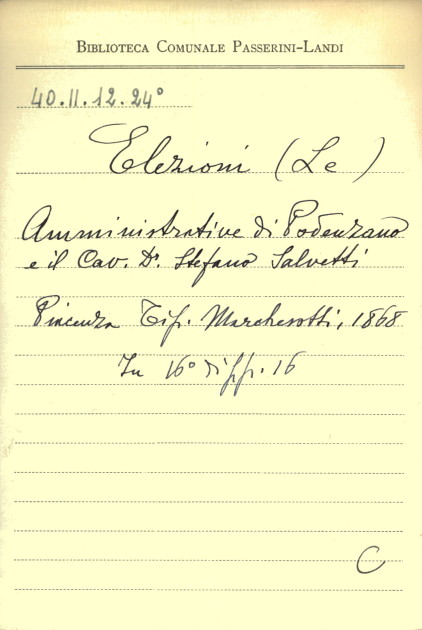 BIBLIOTECA COMUNALE PASSERINI-LANDI
40.II.12.24°
Elezioni (Le)
Amministrative di Podenzano
e il Cav. Dr. Stefano Salvetti
Piacenza Tip. Marchesotti, 1868
In 16° di pp. 16
C